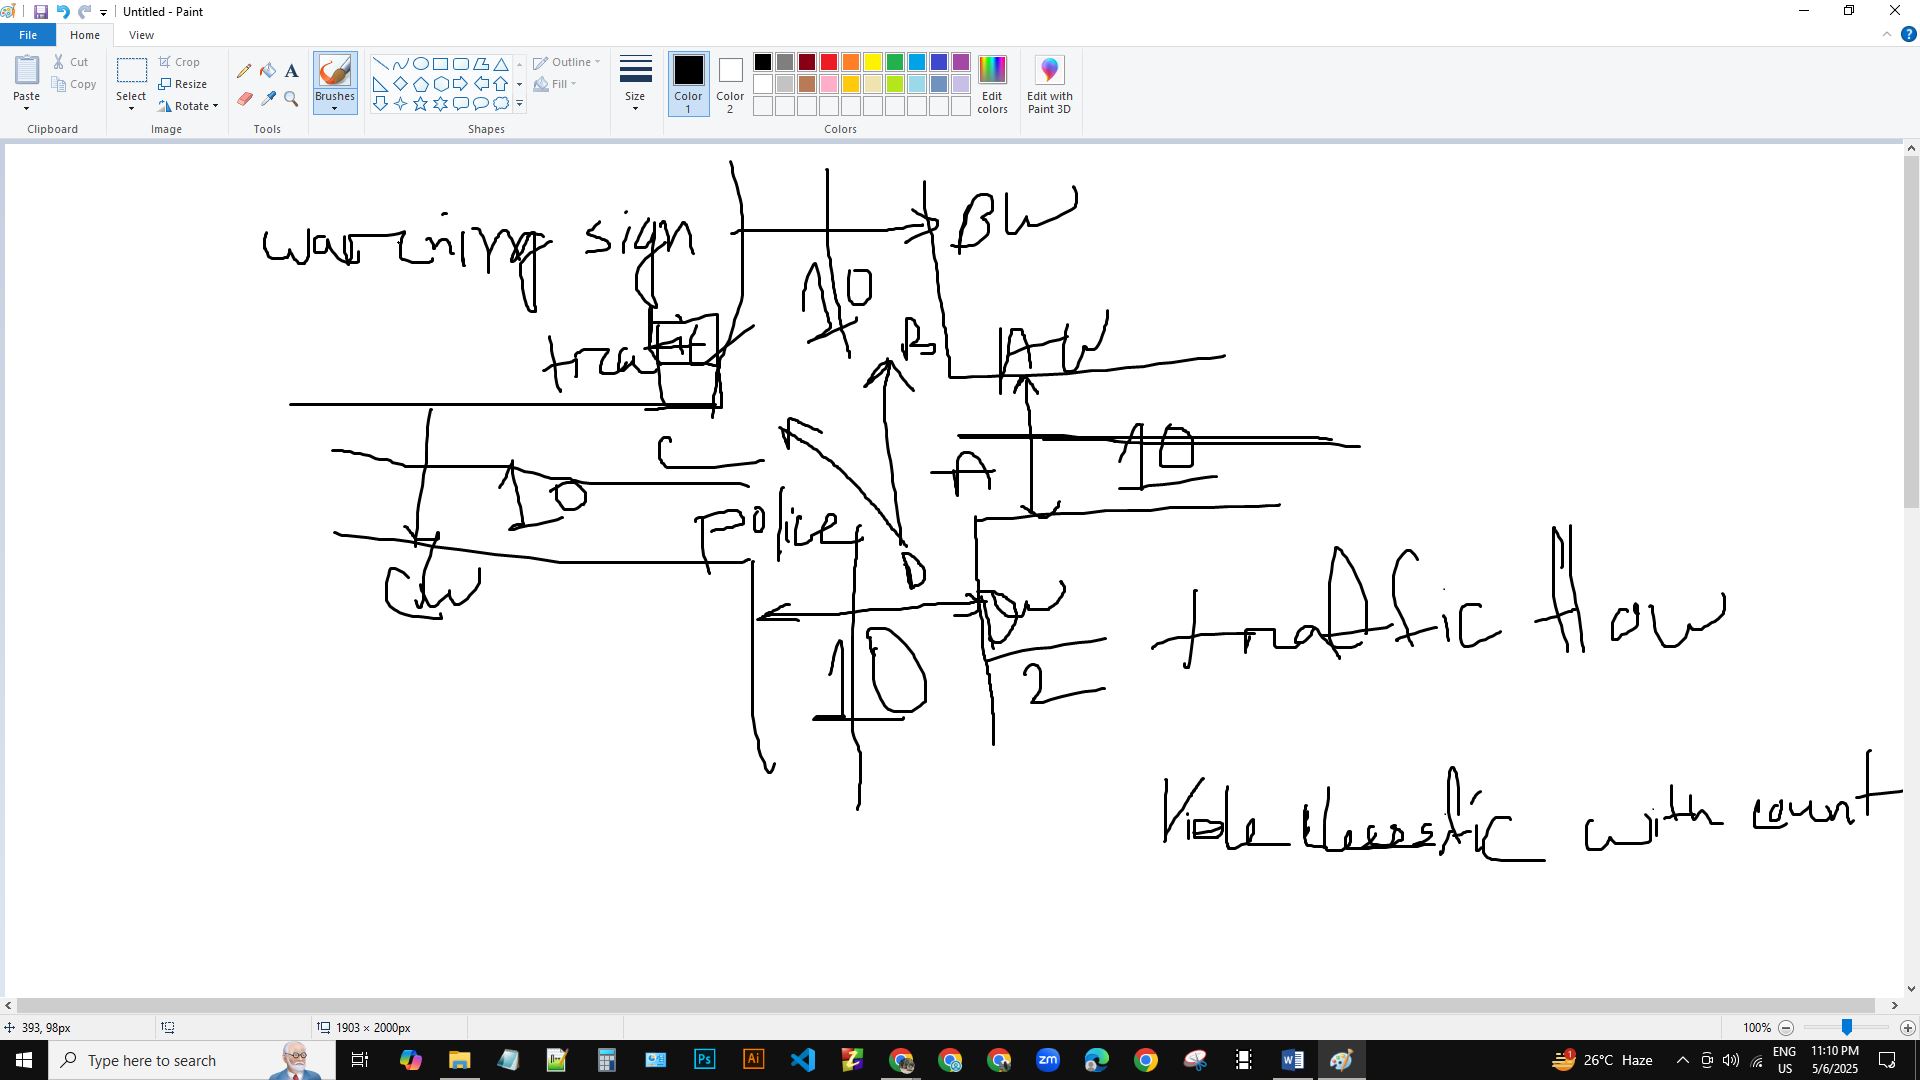 Untitled - Paint
File
Home
View
Paste
Cut
Copy
Clipboard
Select
Crop
Resize
Rotate
Image
Tools
Brushes
Shapes
Outline
Fill
Size
Color
1
Color
2
Edit
colors
Colors
Edit with
Paint 3D
warning sign
BW
10
B
AW
C
A
10
10
police
D
CW
DW
10
2
traffic flow
with count
393, 98px
1903 × 2000px
100%
Type here to search
26°C Haze
ENG
US
11:10 PM
5/6/2025